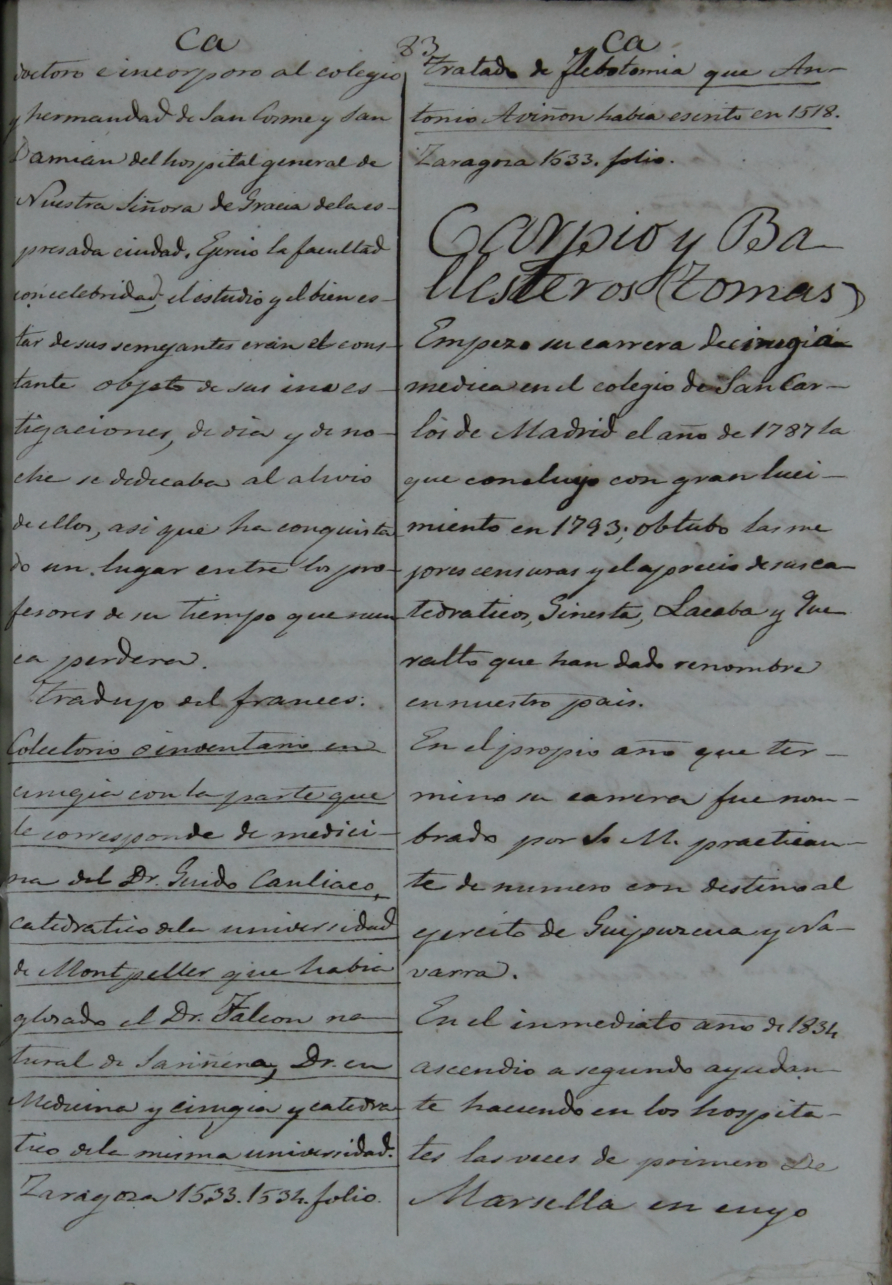 Ca
doctoro e incorporo al colegio
y hermandad de San Cosme y San
Damian del hospital general de
Nuestra Señora de Gracia dela es-
presada ciudad. Egercio la facultad
con celebridad, el estudio y el bien es-
tar de sus semejantes eran el cons-
tante objeto de sus inves-
tigaciones, de dia y de no-
che se dedicaba al alivio
de ellos, asi que ha conquista
do un lugar entre los pro-
fesores de su tiempo que nun-
ca perdera.
Tradujo del frances:
Colectorio o inventario en
cirugia con la parte que
le corresponde de medici-
na del Dr. Guido Cauliaco,
catedratico dela universidad
de Montpeller que habia
glosado el Dr. Falcon na-
tural de Sariñena, Dr. en
Medicina y cirugia y catedra-
tico dela misma universidad.
Zaragoza 1533. 1534. folio.
83
Ca
Tratado de flebotomia que An-
tonio Aviñon habia escrito en 1518.
Zaragoza 1533. folio.
Carpio y Ba-
llesteros (Tomas)
Empezo su carrera de cirugia
medica en el colegio de San Car-
los de Madrid el año de 1787 la
que concluyo con gran luci-
miento en 1793; obtubo las me
jores censuras y el aprecio de sus ca-
tedraticos, Ginesta, Lacaba y Que
ralto que han dado renombre
en nuestro pais.
En el propio año que ter-
mino su carrera fue nom-
brado por S. M. practican-
te de numero con destino al
egercito de Guipuzcua y Na-
varra.
En el inmediato año de 1834
ascendio a segundo ayudan-
te haciendo en los hospita-
les las veces de primero De
Marsella en cuyo